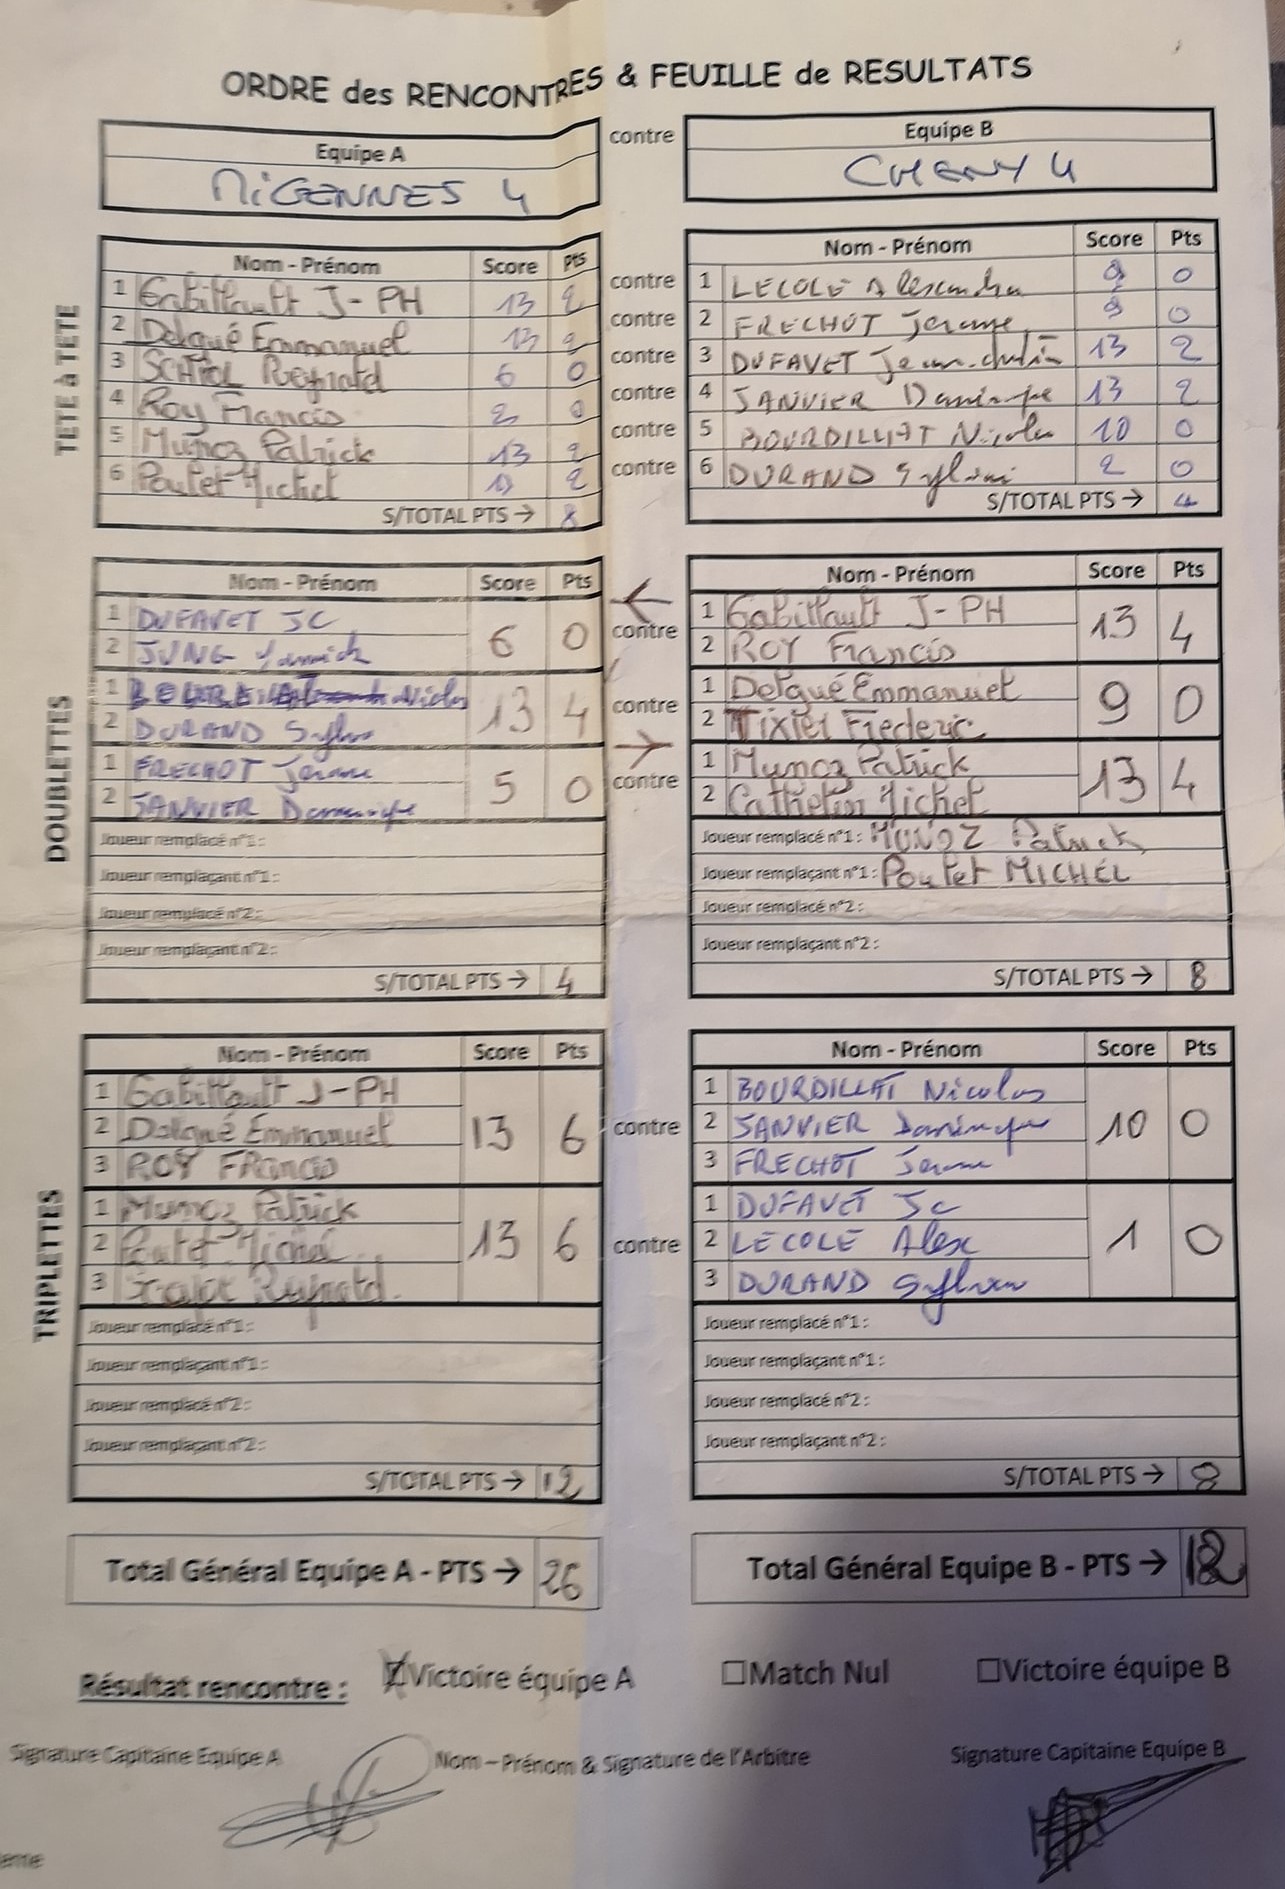 ORDRE des RENCONTRES & FEUILLE de RESULTATS
Equipe A contre Equipe B
MiGENNES 4 CHENY 4
TETE à TETE
Nom - Prénom Score Pts Nom - Prénom Score Pts
1 Gabillault J-PH 13 2 contre 1 LECOLE Alexandre 9 0
2 Delqué Emmanuel 13 2 contre 2 FRECHOT Jerome 9 0
3 Reynald 6 0 contre 3 DUFAVET Jean 13 2
4 Roy Francis 2 0 contre 4 JANVIER Dominique 13 2
5 Munoz Patrick 13 2 contre 5 BOURDILLAT Nicolas 10 0
6 Poulet Michel 13 2 contre 6 DURAND Sylvain 2 0
S/TOTAL PTS → 8 S/TOTAL PTS → 4
DOUBLETTES
Nom - Prénom Score Pts Nom - Prénom Score Pts
1 DUFAVET JC 6 0 contre 1 Gabillault J-PH 13 4
2 JUNG Yannick 2 ROY Francis
1 Nicolas 13 4 contre 1 Delqué Emmanuel 9 0
2 DURAND Sylvain 2 Tixier Frederic
1 FRECHOT Jerome 5 0 contre 1 Munoz Patrick 13 4
2 JANVIER Dominique 2 Cathelin Michel
Joueur remplacé n°1 : Joueur remplacé n°1 : MUNOZ Patrick
Joueur remplaçant n°1 : Joueur remplaçant n°1 : Poulet MICHEL
Joueur remplacé n°2 : Joueur remplacé n°2 :
Joueur remplaçant n°2 : Joueur remplaçant n°2 :
S/TOTAL PTS → 4 S/TOTAL PTS → 8
TRIPLETTES
Nom - Prénom Score Pts Nom - Prénom Score Pts
1 Gabillault J-PH 13 6 contre 1 BOURDILLAT Nicolas 10 0
2 Delqué Emmanuel 2 JANVIER Dominique
3 ROY FRancis 3 FRECHOT Jerome
1 Munoz Patrick 13 6 contre 1 DUFAVET JC 1 0
2 Poulet Michel 2 LECOLE Alex
3 Reynald 3 DURAND Sylvain
Joueur remplacé n°1 : Joueur remplacé n°1 :
Joueur remplaçant n°1 : Joueur remplaçant n°1 :
Joueur remplacé n°2 : Joueur remplacé n°2 :
Joueur remplaçant n°2 : Joueur remplaçant n°2 :
S/TOTAL PTS → 12 S/TOTAL PTS →
Total Général Equipe A - PTS → 26 Total Général Equipe B - PTS →
Résultat rencontre : Victoire équipe A Match Nul Victoire équipe B
Signature Capitaine Equipe A Nom – Prénom & Signature de l'Arbitre Signature Capitaine Equipe B